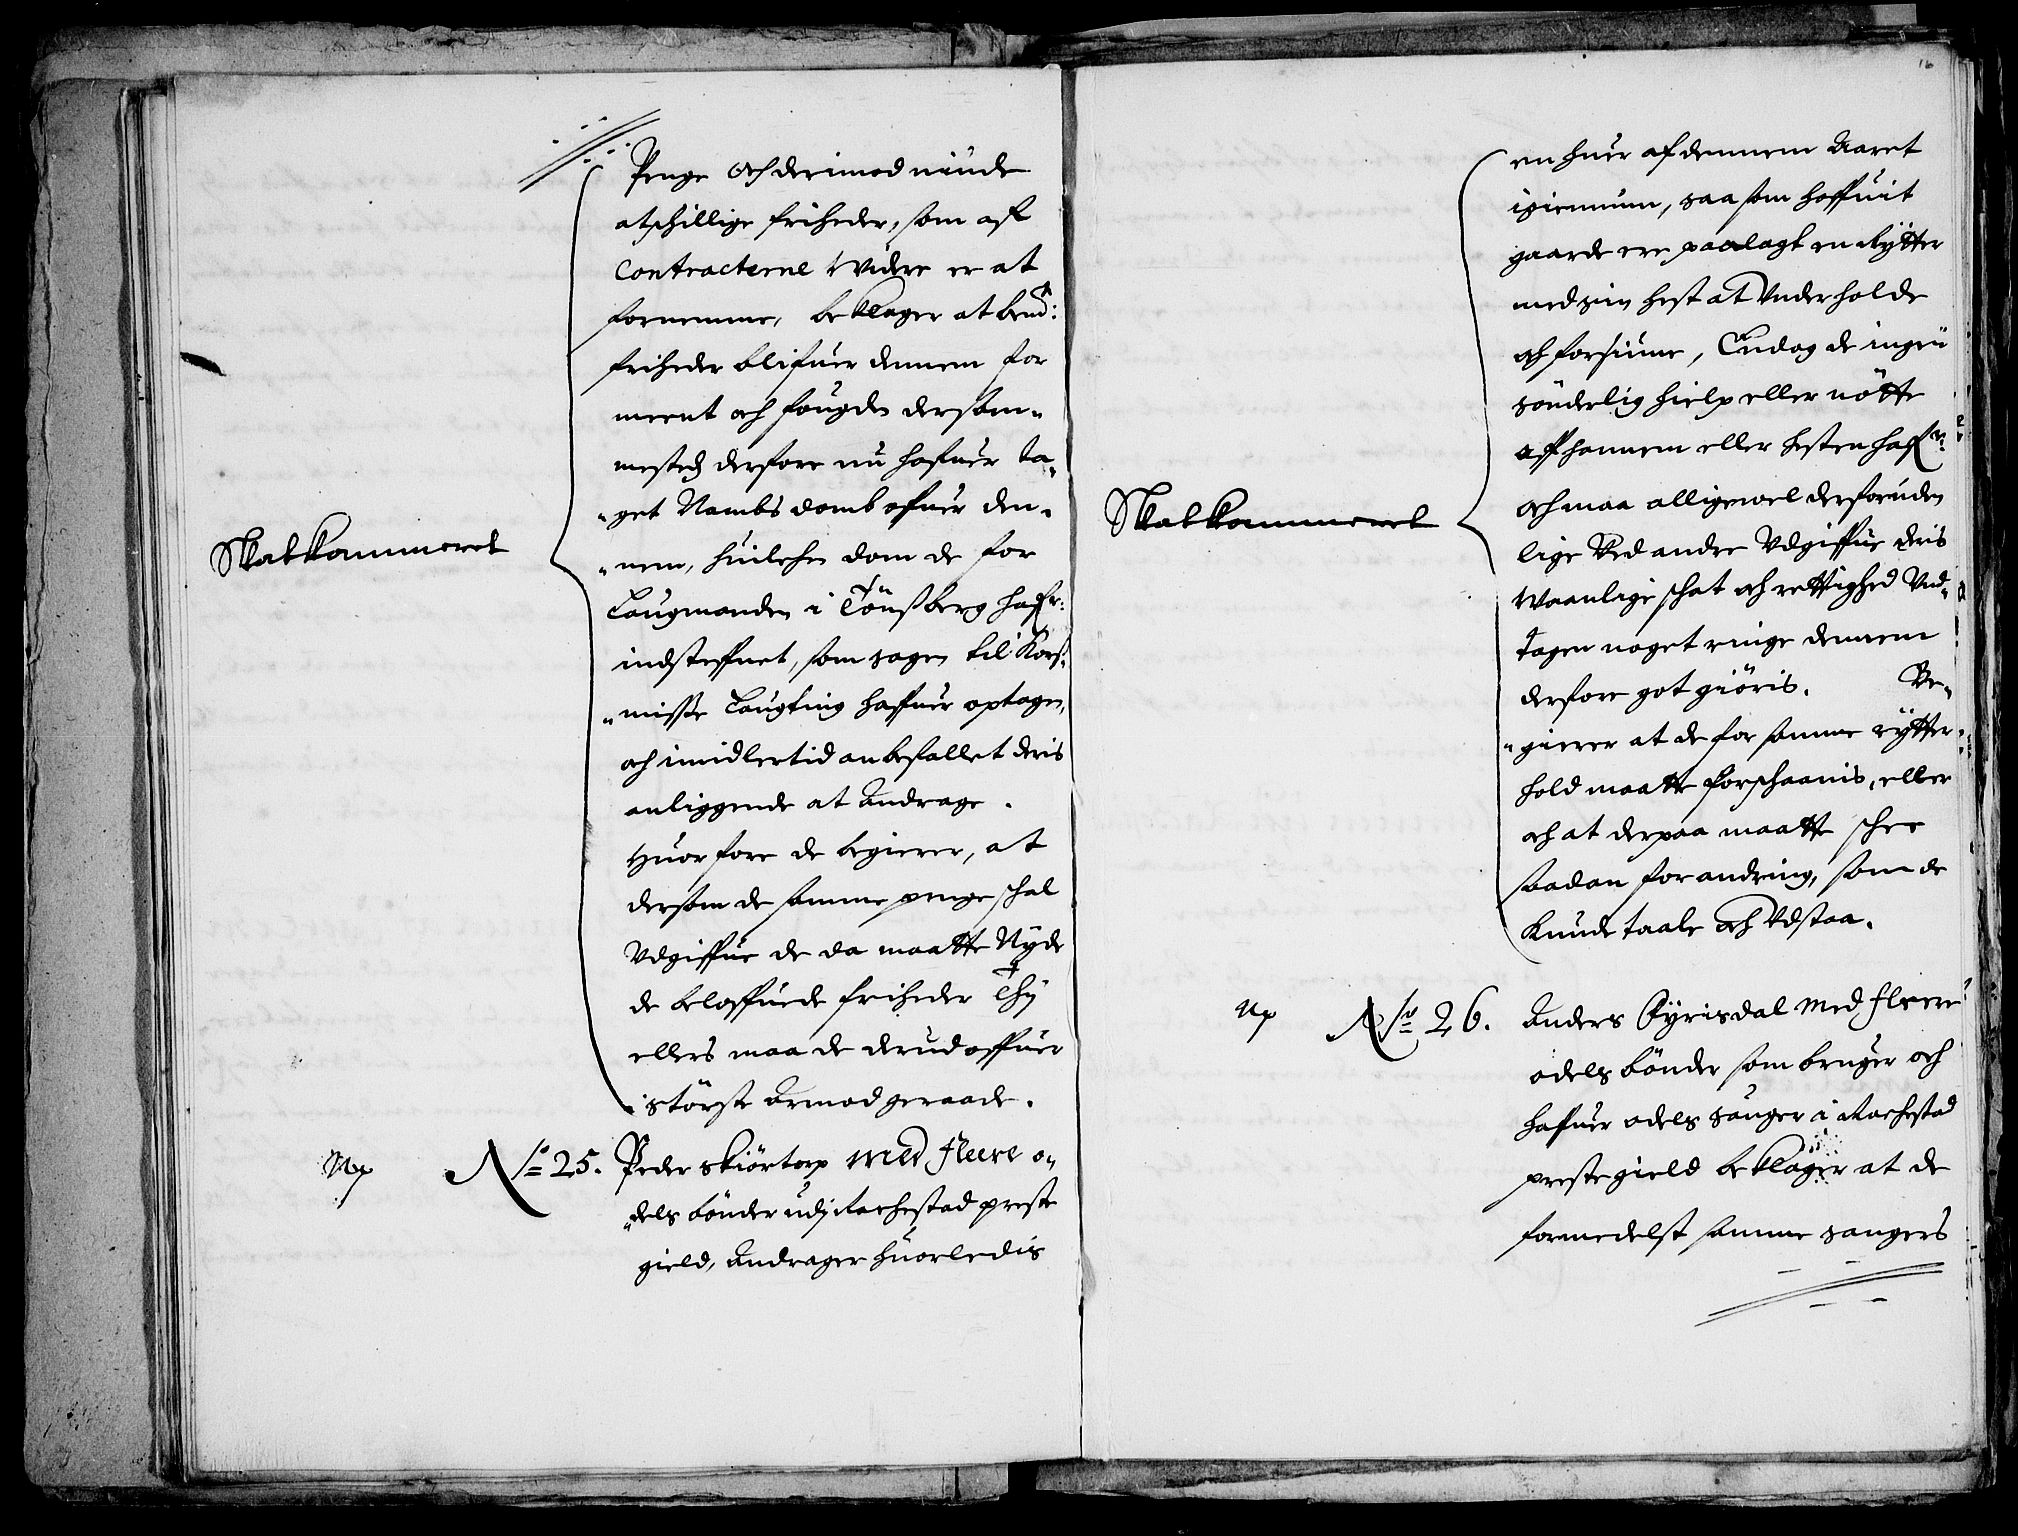 Penge och derimod niude
atschillige friheder, som aff
Contracterne Widere er at
fornemme, beklager at bemt:
friheder blifuer dennem for
meent och fougden dersom-
mesteds derfore nu hafuer ta-
get Nambs domb ofuer den-
nem, huilchen dom de for
Laugmanden i Tönßberg hafr:
indsteffnet, som sagen til Korß-
misse Laugting haffuer optagen,
och imidlertid anbefallet deris
anliggende at andrage.
Huorfore de begierer, at
dersom de samme penge schal
Udgiffue de da maatte Nyde
de beloffuede friheder Thj
ellers maa de derud offuer
i störste armod geraade.
Skatkammeret
Np
No 25. Peder skiörtorp med fleere o-
dels bönder udj Rachestad preste
gield, andrager huorledis
16
en huer af dennem Aaret
igiennum, saa som hoffuit
gaarde ere paalagt en Rytter
med sin hest at Underholde
och forsiune, Endog de ingen
sönderlig hielp eller nötte
aff hannem eller hesten hafr:
och maa alligeuel derforuden
lige Ved andre Udgiffue deris
Waanlige schat och rettighed Und-
tagen noget ringe dennem
derfore got giöris. Be-
gierer at de for samme rytter-
hold maatte forschaanis, eller
och at derpaa maatte schee
saadan forandring, som de
Kunde taale och Udstaa.
Skatkammeret
Np
No 26. Anders Fyrisdal med fleere
odels bönder som bruger och
hafuer odels sauger i Rachestad
prestegield beklager at de
formedelst samme saugers